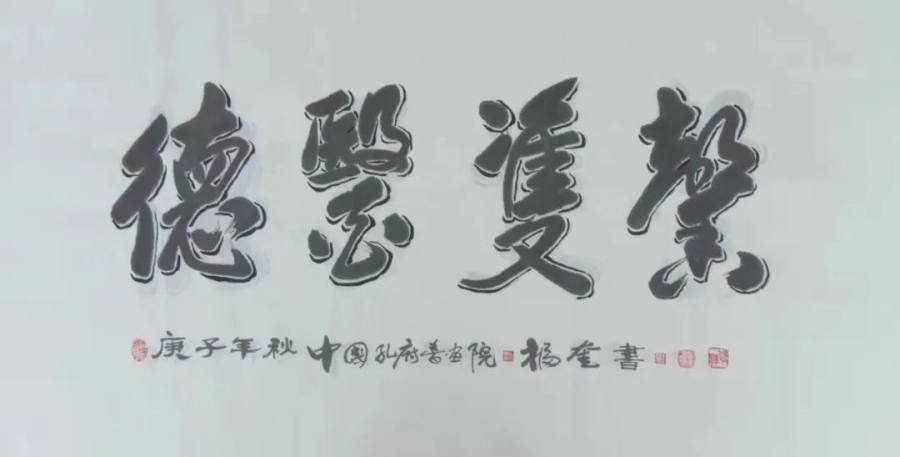 德醫雙馨
庚子年秋 中國孔府書画院 楊奎書